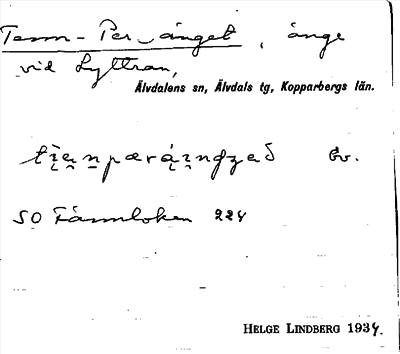 Tenn-Per-änget, änge
vid Lyttran,
Älvdalens sn, Älvdals tg, Kopparbergs län.
Ev.
SO Tännloken 224
HELGE LINDBERG 1934.